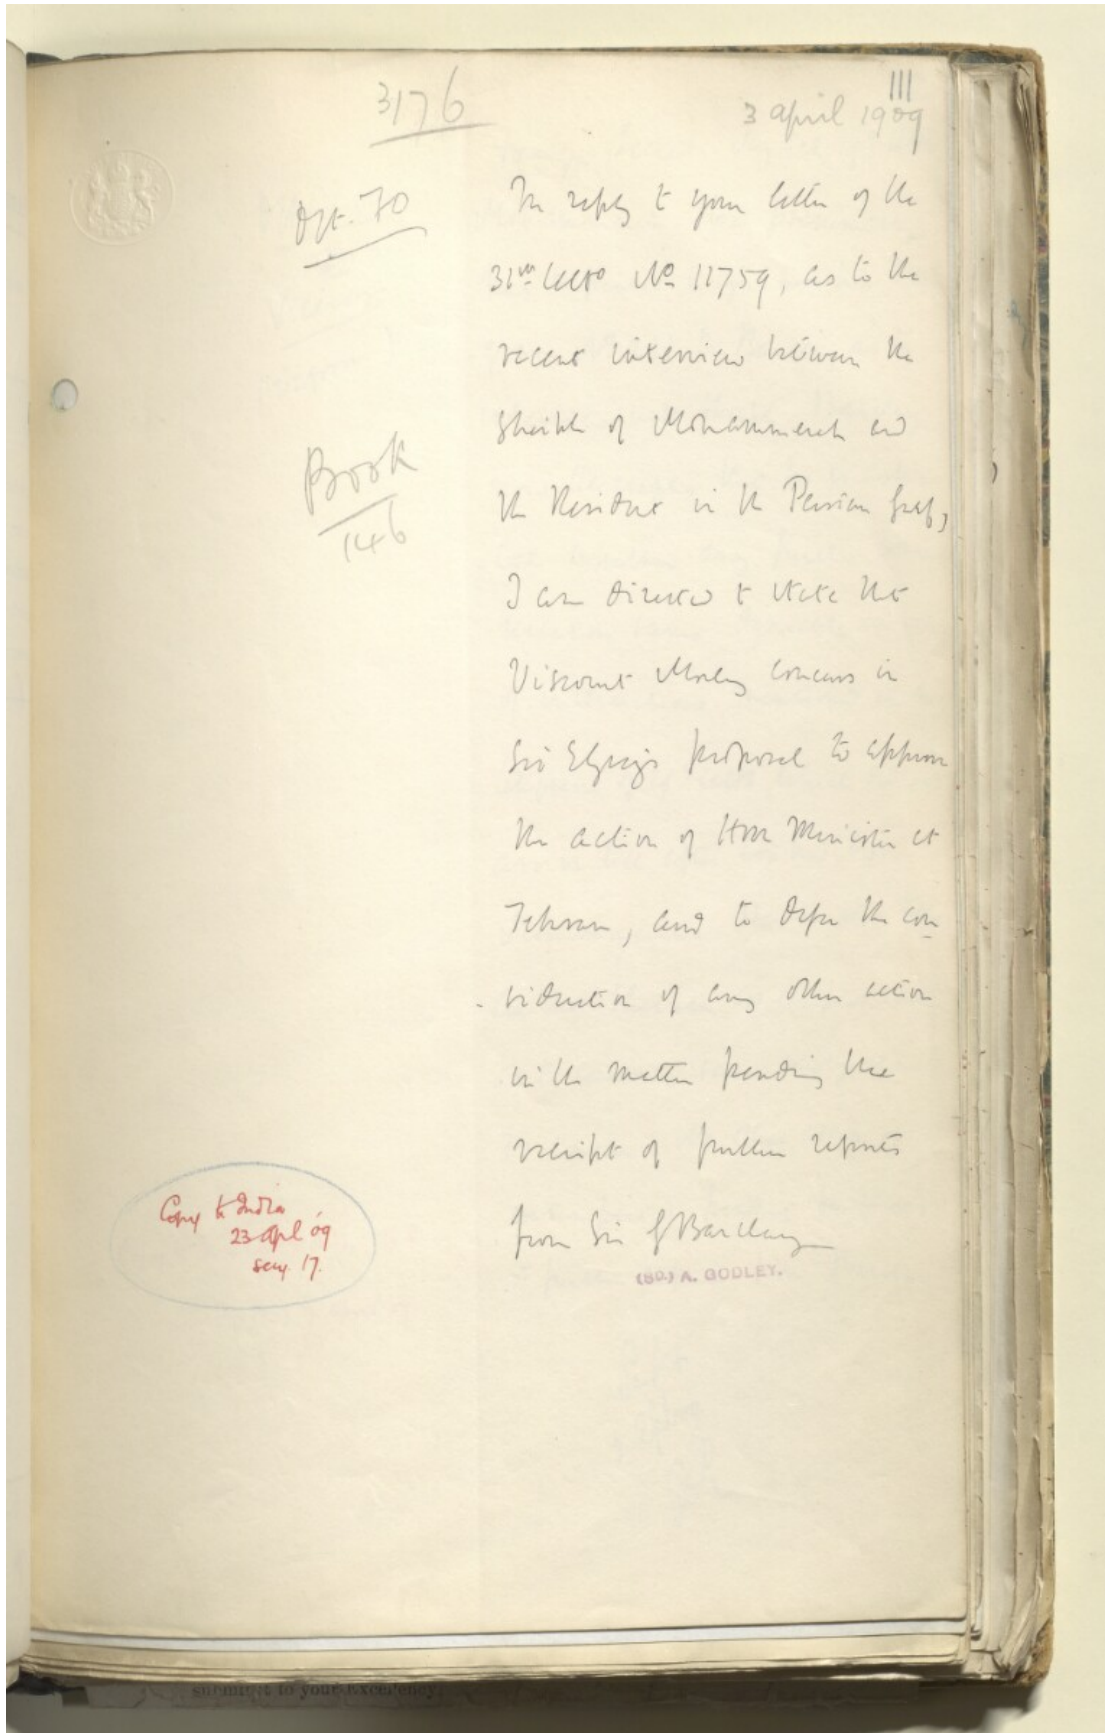 3176
111
3 april 1909
Dft. 70
In reply to your letter of the
31st No 11759, as to the
recent interview between the
Sheikh of Mohammerah and
the Resident in the Persian Gulf,
Book
146
I am directed to state that
Viscount Morley concurs in
Sir E Grey's proposal to approve
the action of HM Minister at
Tehran, and to defer the con
-sideration of any other action
in the matter pending the
receipt of further reports
from Sir G Barclay
(SD.) A. GODLEY.
Copy to India
23 Apl 09
secy. 17.
submitted to your Excellency.